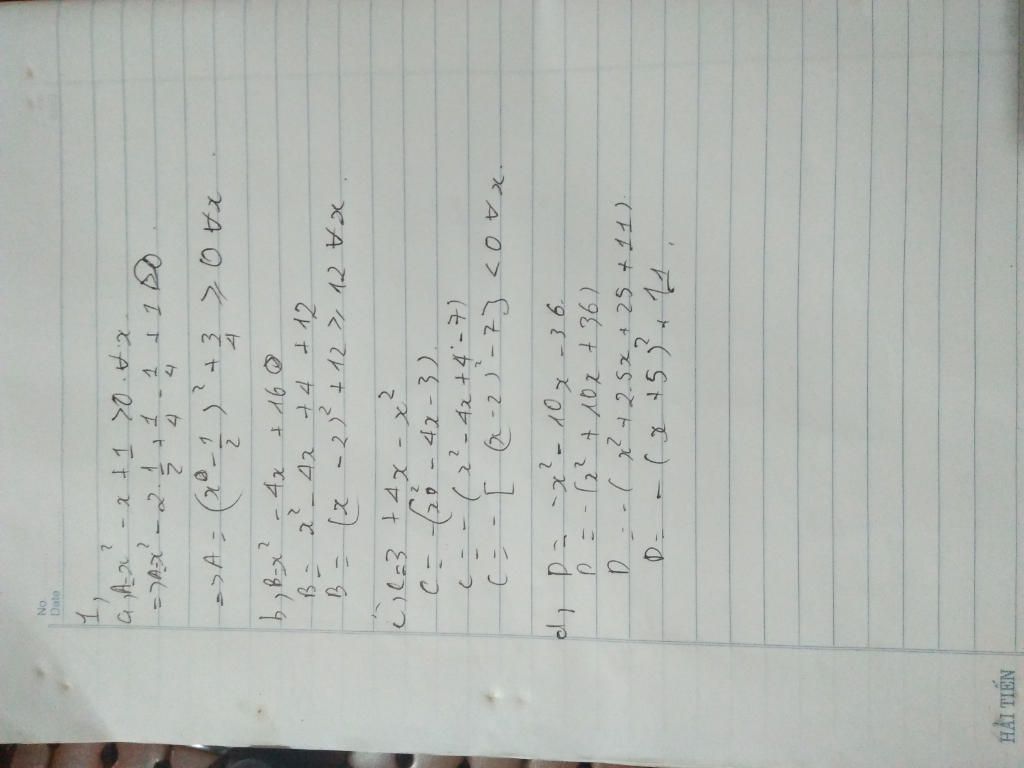 No.
Date
1,
a, A=x² - x + 1 >0 ∀x
=>A=x² - 2.1/2 + 1/4 - 1/4 + 1
=> A = (x - 1/2)² + 3/4 ≥ 0 ∀x.
b, B=x² - 4x + 16
B= x² - 4x + 4 + 12
B= (x - 2)² + 12 ≥ 12 ∀x.
c, C=3 + 4x - x²
C= -(x² - 4x - 3)
C= -(x² - 4x + 4 - 7)
C= -[(x-2)² - 7] < 0 ∀x.
d, D= -x² - 10x - 36.
D= -(x² + 10x + 36)
D= -(x² + 2.5x + 25 + 11)
D= -(x + 5)² + 11.
HẢI TIẾN